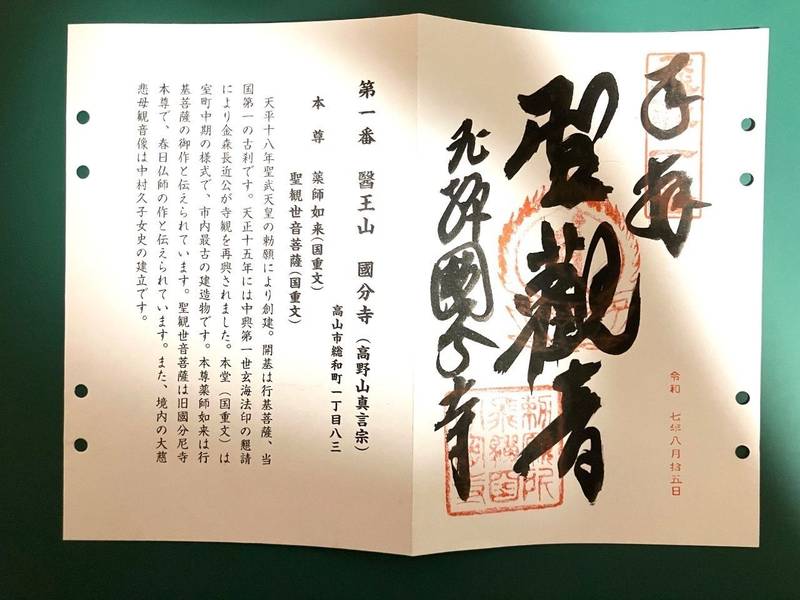 奉拝
聖観音
飛驒國分寺
令和 七年八月拾五日
第一番 醫王山 國分寺（高野山真言宗）
高山市総和町一丁目八三
本尊 薬師如来(国重文)
聖観世音菩薩(国重文)
天平十八年聖武天皇の勅願により創建。開基は行基菩薩、当
国第一の古刹です。天正十五年には中興第一世玄海法印の懇請
により金森長近公が寺観を再興されました。本堂（国重文）は
室町中期の様式で、市内最古の建造物です。本尊薬師如来は行
基菩薩の御作と伝えられています。聖観世音菩薩は旧國分尼寺
本尊で、春日仏師の作と伝えられています。また、境内の大慈
悲母観音像は中村久子女史の建立です。